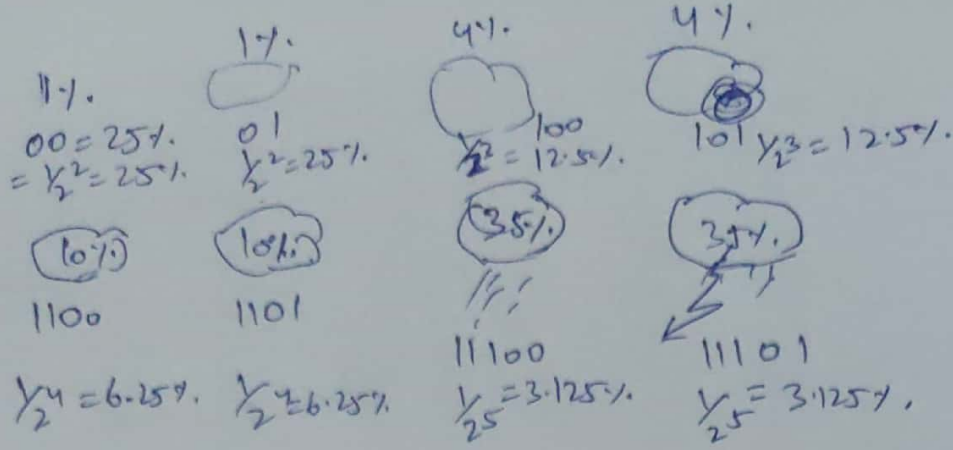 1%. 1%. 4%. 4%.
00 = 25%. 01 100 101
= 1/2² = 25%. 1/2² = 25%. 1/2³ = 12.5%. 1/2³ = 12.5%.
10% 10%. 35%. 35%.
1100 1101
11100 11101
1/2⁴ = 6.25%. 1/2⁴ = 6.25%. 1/25 = 3.125%. 1/25 = 3.125%.